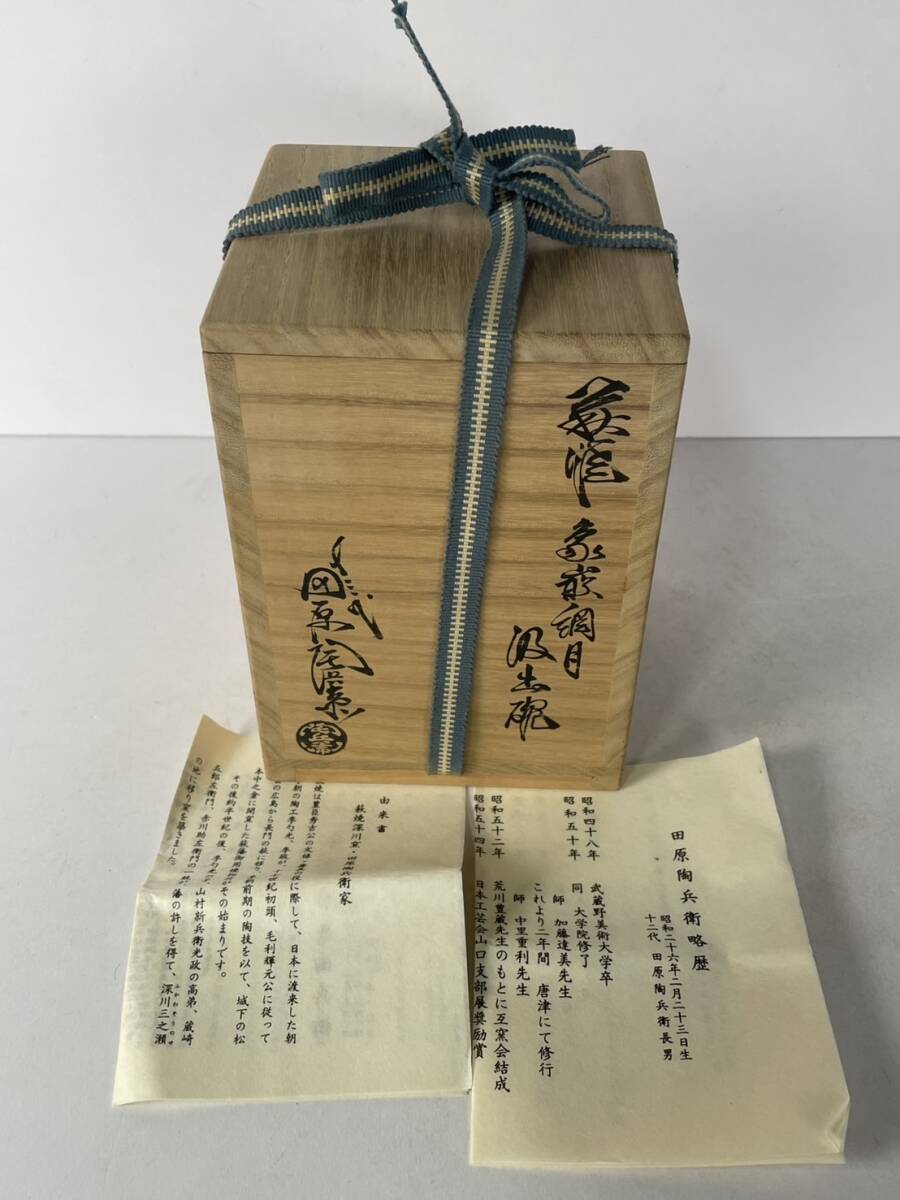 萩焼
象嵌調月
汲出碗
十三代
田原陶兵衛
田原陶兵衛略歴
昭和二十六年二月二十三日生
十二代 田原陶兵衛長男
昭和四十八年 武蔵野美術大学卒
昭和五十年 同 大学院修了
師 加藤達美先生
これより二年間 唐津にて修行
師 中里重利先生
昭和五十二年 荒川豊蔵先生のもとに互窯会結成
昭和五十四年 日本工芸会山口支部展奨励賞
由来書
萩焼深川窯・田原陶兵衛家
焼は豊臣秀吉公の文禄・慶の役に際して、日本に渡来した朝
朝の陶工李勺光、李敬が、十七世紀初頭、毛利輝元公に従って
の広島から長門の萩に移り、前期の陶技を以て、城下の松
本中之倉に開窯した萩藩御用焼がその始まりです。
その後約半世紀の後、李勺光の 山村新兵衛光政の高弟、蔵崎
五郎左衛門、赤川助左衛門の一族が、藩の許しを得て、深川三之瀬
の地に移り窯を築きました。